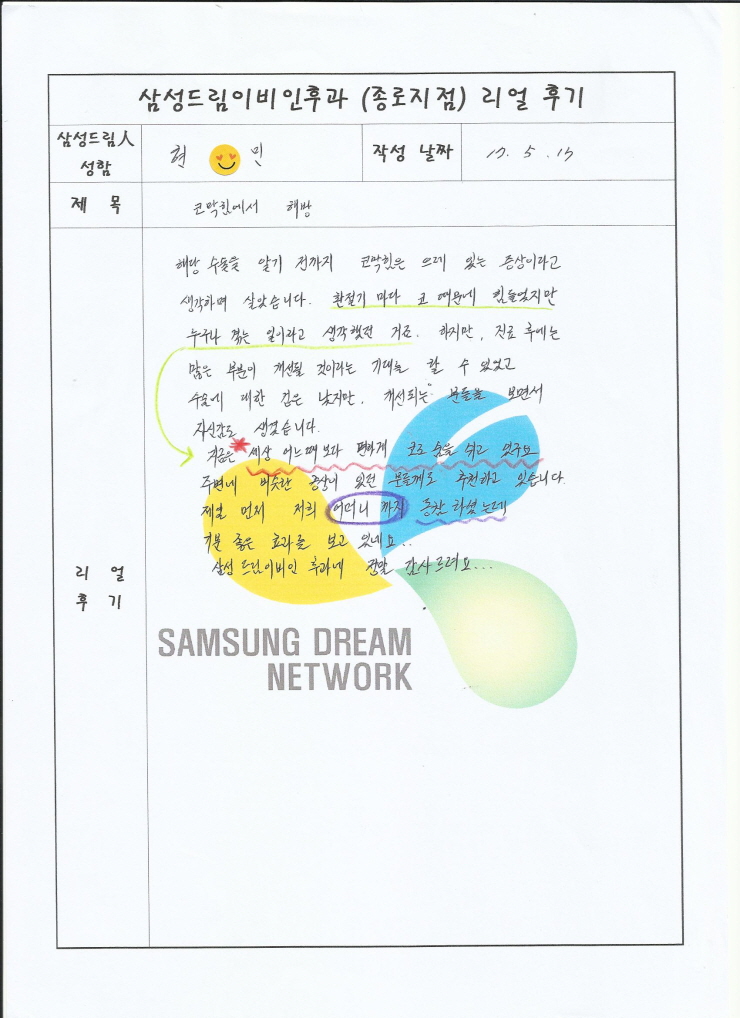 삼성드림이비인후과 (종로지점) 리얼 후기
삼성드림人
성함
현 민
작성 날짜
17. 5. 17
제 목
코막힘에서 해방
해당 수술을 알기 전까지 코막힘은 으레 있는 증상이라고
생각하며 살았습니다. 환절기 마다 코 때문에 힘들었지만
누구나 겪는 일이라고 생각했던 거죠. 하지만, 진료 후에는
많은 부분이 개선될 것이라는 기대를 할 수 있었고
수술에 대한 겁은 났지만, 개선되는 분들을 보면서
자신감도 생겼습니다.
지금은 세상 어느때 보다 편하게 코로 숨을 쉬고 있구요
주변에 비슷한 증상이 있던 분들께도 추천하고 있습니다.
제일 먼저 저희 어머니 까지 동참 하셨는데
기분 좋은 효과를 보고 있네요..
삼성 드림이비인 후과에 정말 감사드려요...
리 얼
후 기
SAMSUNG DREAM
NETWORK